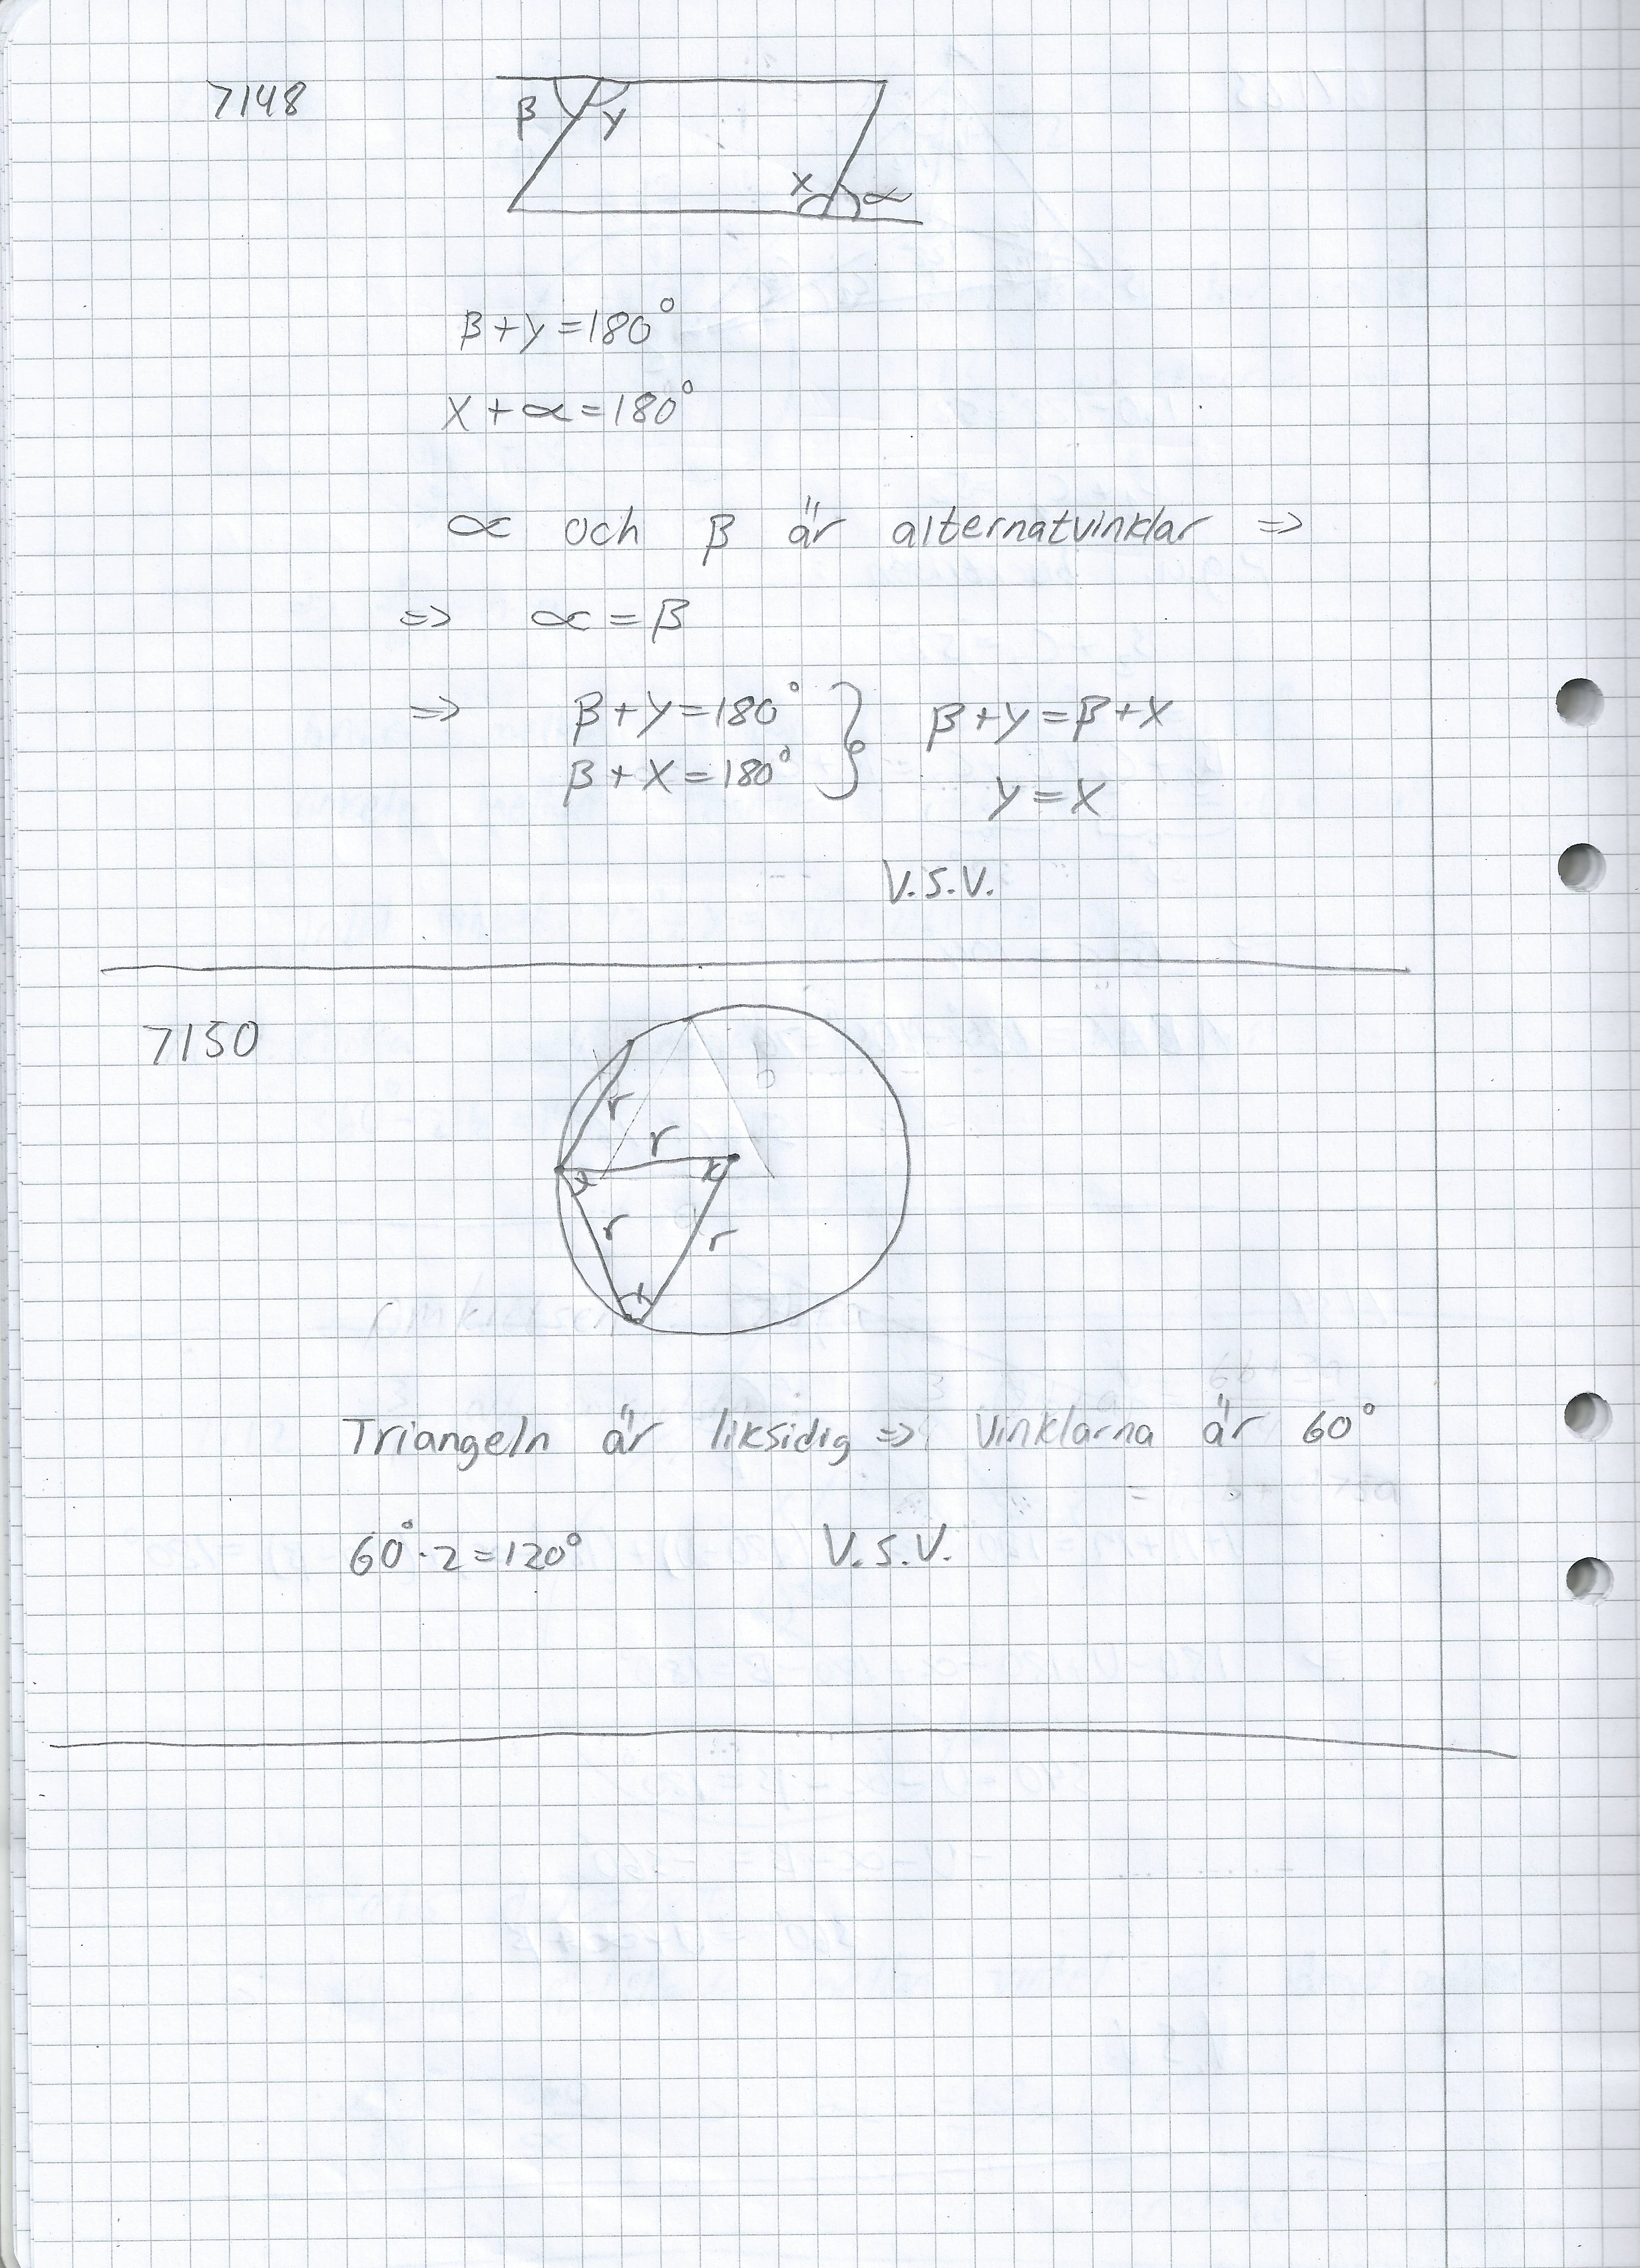 7148
β y
x α
β+y=180°
x+α=180°
α och β är alternatvinklar =>
=> α=β
=> β+y=180° } β+y=β+x
β+x=180° y=x
V.S.V.
7150
r
r
r r
Triangeln är liksidig => vinklarna är 60°
60°·2=120° V.S.V.